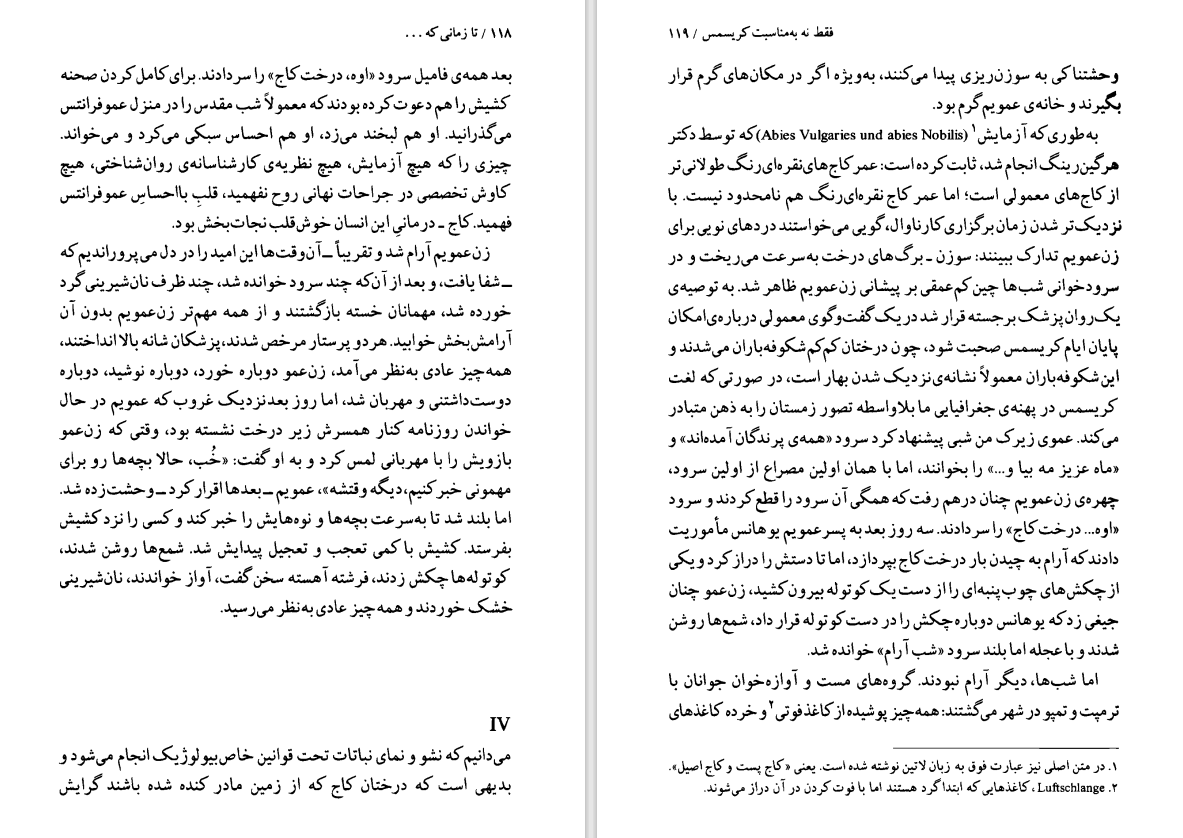 ۱۱۸ / تا زمانی که ...
بعد همه‌ی فامیل سرود «اوه، درخت کاج» را سر دادند. برای کامل کردن صحنه
کشیش را هم دعوت کرده بودند که معمولاً شب مقدس را در منزل عمو فرانتس
می‌گذرانید. او هم لبخند می‌زد، او هم احساس سبکی می‌کرد و می‌خواند.
چیزی را که هیچ آزمایش، هیچ نظریه‌ی کارشناسانه‌ی روان‌شناختی، هیچ
کاوش تخصصی در جراحات نهانی روح نفهمید، قلبِ بااحساسِ عمو فرانتس
فهمید. کاج ـ درمانیِ این انسان خوش‌قلب نجات‌بخش بود.
زن‌عمویم آرام شد و تقریباً ــ آن‌وقت‌ها این امید را در دل می‌پروراندیم که
ــ شفا یافت، و بعد از آن‌که چند سرود خوانده شد، چند ظرف نان‌شیرینی گرد
خورده شد، مهمانان خسته بازگشتند و از همه مهم‌تر زن‌عمویم بدون آن
آرامش‌بخش خوابید. هر دو پرستار مرخص شدند، پزشکان شانه بالا انداختند،
همه‌چیز عادی به‌نظر می‌آمد، زن‌عمو دوباره خورد، دوباره نوشید، دوباره
دوست‌داشتنی و مهربان شد، اما روز بعد نزدیک غروب که عمویم در حال
خواندن روزنامه کنار همسرش زیر درخت نشسته بود، وقتی که زن‌عمو
بازویش را با مهربانی لمس کرد و به او گفت: «خُب، حالا بچه‌ها رو برای
مهمونی خبر کنیم، دیگه وقتشه»، عمویم ــ بعدها اقرار کرد ــ وحشت‌زده شد.
اما بلند شد تا به‌سرعت بچه‌ها و نوه‌هایش را خبر کند و کسی را نزد کشیش
بفرستد. کشیش با کمی تعجب و تعجیل پیدایش شد. شمع‌ها روشن شدند،
کوتوله‌ها چکش زدند، فرشته آهسته سخن گفت، آواز خواندند، نان‌شیرینی
خشک خوردند و همه چیز عادی به‌نظر می‌رسید.
IV
می‌دانیم که نشو و نمای نباتات تحت قوانین خاص بیولوژیک انجام می‌شود و
بدیهی است که درختان کاج که از زمین مادر کنده شده باشند گرایش
فقط نه به‌مناسبت کریسمس / ۱۱۹
وحشتناکی به سوزن‌ریزی پیدا می‌کنند، به‌ویژه اگر در مکان‌های گرم قرار
بگیرند و خانه‌ی عمویم گرم بود.
به‌طوری‌که آزمایش۱ (Abies Vulgaries und abies Nobilis) که توسط دکتر
هرگین‌رینگ انجام شد، ثابت کرده است: عمر کاج‌های نقره‌ای‌رنگ طولانی‌تر
از کاج‌های معمولی است؛ اما عمر کاج نقره‌ای‌رنگ هم نامحدود نیست. با
نزدیک‌تر شدن زمان برگزاری کارناوال، گویی می‌خواستند دردهای نویی برای
زن‌عمویم تدارک ببینند: سوزن ـ برگ‌های درخت به‌سرعت می‌ریخت و در
سرودخوانی شب‌ها چین کم‌عمقی بر پیشانی زن‌عمویم ظاهر شد. به توصیه‌ی
یک روان‌پزشک برجسته قرار شد در یک گفت‌وگوی معمولی درباره‌ی امکان
پایان ایام کریسمس صحبت شود، چون درختان کم‌کم شکوفه‌باران می‌شدند و
این شکوفه‌باران معمولاً نشانه‌ی نزدیک شدن بهار است، در صورتی که لغت
کریسمس در پهنه‌ی جغرافیایی ما بلاواسطه تصور زمستان را به ذهن متبادر
می‌کند. عموی زیرک من شبی پیشنهاد کرد سرود «همه‌ی پرندگان آمده‌اند» و
«ماه عزیز مه بیا و...» را بخوانند، اما با همان اولین مصراع از اولین سرود،
چهره‌ی زن‌عمویم چنان درهم رفت که همگی آن سرود را قطع کردند و سرود
«اوه... درخت کاج» را سر دادند. سه روز بعد به پسرعمویم یوهانس مأموریت
دادند که آرام به چیدن بار درخت کاج بپردازد، اما تا دستش را دراز کرد و یکی
از چکش‌های چوب‌پنبه‌ای را از دست یک کوتوله بیرون کشید، زن‌عمو چنان
جیغی زد که یوهانس دوباره چکش را در دست کوتوله قرار داد، شمع‌ها روشن
شدند و با عجله اما بلند سرود «شب آرام» خوانده شد.
اما شب‌ها، دیگر آرام نبودند. گروه‌های مست و آوازه‌خوان جوانان با
ترمپت و تمپو در شهر می‌گشتند: همه‌چیز پوشیده از کاغذ فوتی۲ و خرده کاغذهای
۱. در متن اصلی نیز عبارت فوق به زبان لاتین نوشته شده است. یعنی «کاج پست و کاج اصیل».
۲. Luftschlange، کاغذهایی که ابتدا گرد هستند اما با فوت کردن در آن دراز می‌شوند.